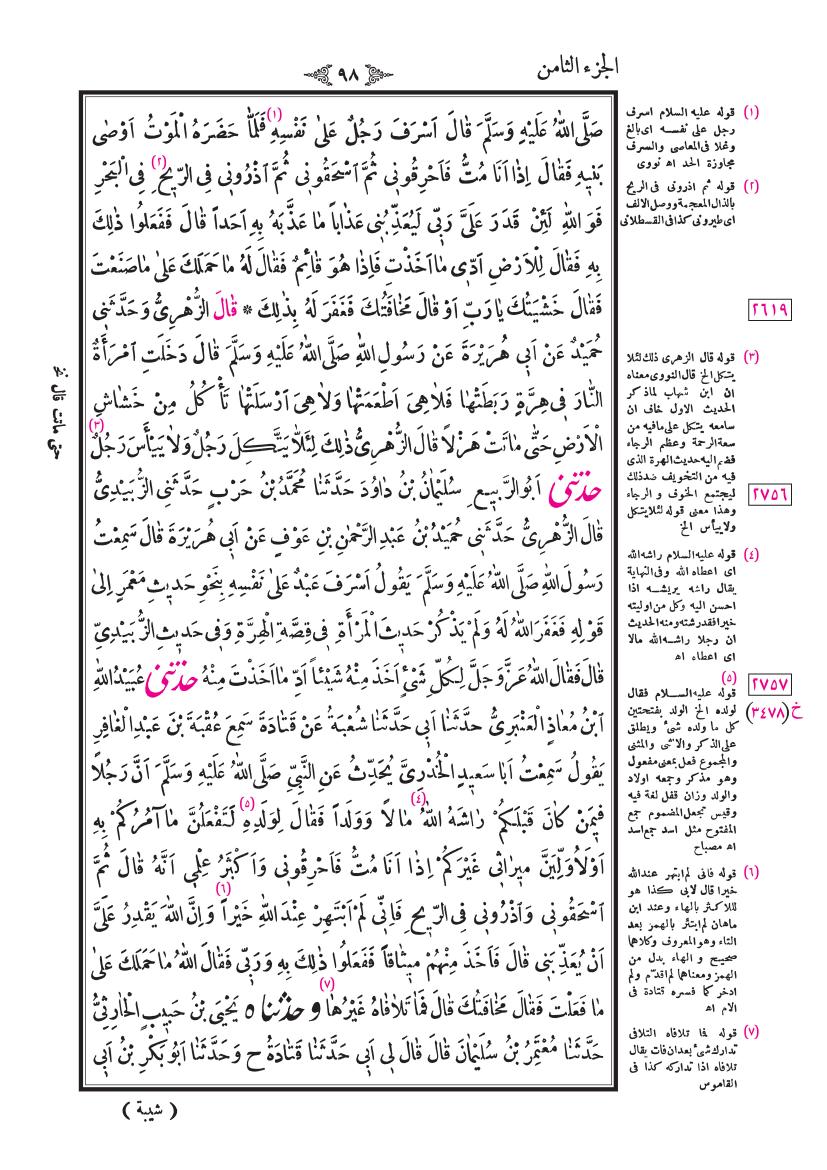 الجزء الثامن
٩٨
صَلَّى اللهُ عَلَيْهِ وَسَلَّمَ قَالَ اَسْرَفَ رَجُلٌ عَلىٰ نَفْسِهِ (١) فَلَمَّا حَضَرَهُ الْمَوْتُ اَوْصٰى
بَنِيهِ فَقَالَ اِذٰا اَنَا مُتُّ فَاَحْرِقُونِى ثُمَّ اَسْحَقُونِى ثُمَّ اَذْرُونِى فِى الرِّيحِ (٢) فِى الْبَحْرِ
فَوَ اللهِ لَئِنْ قَدَرَ عَلَىَّ رَبِّى لَيُعَذِّبُنِى عَذٰاباً مٰا عَذَّبَهُ بِهِ اَحَداً قَالَ فَفَعَلُوا ذٰلِكَ
بِهِ فَقَالَ لِلْاَرْضِ اَدِّى مٰا اَخَذْتِ فَاِذٰا هُوَ قٰائِمٌ فَقَالَ لَهُ مٰا حَمَلَكَ عَلىٰ مٰا صَنَعْتَ
فَقَالَ خَشْيَتُكَ يٰا رَبِّ اَوْ قَالَ مَخٰافَتُكَ فَغَفَرَ لَهُ بِذٰلِكَ * قٰالَ الزُّهْرِىُّ وَحَدَّثَنِى
حُمَيْدٌ عَنْ اَبِى هُرَيْرَةَ عَنْ رَسُولِ اللهِ صَلَّى اللهُ عَلَيْهِ وَسَلَّمَ قَالَ دَخَلَتِ امْرَأَةٌ
النَّارَ فِى هِرَّةٍ رَبَطَتْهٰا فَلاٰ هِىَ اَطْعَمَتْهٰا وَلاٰ هِىَ اَرْسَلَتْهٰا تَأْكُلُ مِنْ خَشٰاشِ
الْاَرْضِ حَتّٰى مٰاتَتْ هَزْلاً قَالَ الزُّهْرِىُّ ذٰلِكَ لِئَلاّٰ يَتَّكِلَ رَجُلٌ وَلاٰ يَيْأَسَ رَجُلٌ (٣)
حَدَّثَنِى اَبُو الرَّبِيعِ سُلَيْمٰانُ بْنُ دٰاوُدَ حَدَّثَنٰا مُحَمَّدُ بْنُ حَرْبٍ حَدَّثَنِى الزُّبَيْدِىُّ
قَالَ الزُّهْرِىُّ حَدَّثَنِى حُمَيْدُ بْنُ عَبْدِ الرَّحْمٰنِ بْنِ عَوْفٍ عَنْ اَبِى هُرَيْرَةَ قَالَ سَمِعْتُ
رَسُولَ اللهِ صَلَّى اللهُ عَلَيْهِ وَسَلَّمَ يَقُولُ اَسْرَفَ عَبْدٌ عَلىٰ نَفْسِهِ بِنَحْوِ حَدِيثِ مَعْمَرٍ اِلىٰ
قَوْلِهِ فَغَفَرَ اللهُ لَهُ وَلَمْ يَذْكُرْ حَدِيثَ الْمَرْأَةِ فِى قِصَّةِ الْهِرَّةِ وَفِى حَدِيثِ الزُّبَيْدِىِّ
قَالَ فَقَالَ اللهُ عَزَّ وَجَلَّ لِكُلِّ شَىْءٍ اَخَذَ مِنْهُ شَيْئاً اَدِّ مٰا اَخَذْتَ مِنْهُ حَدَّثَنِى عُبَيْدُ اللهِ
ابْنُ مُعٰاذٍ الْعَنْبَرِىُّ حَدَّثَنٰا اَبِى حَدَّثَنٰا شُعْبَةُ عَنْ قَتٰادَةَ سَمِعَ عُقْبَةَ بْنَ عَبْدِ الْغٰافِرِ
يَقُولُ سَمِعْتُ اَبٰا سَعِيدٍ الْخُدْرِىَّ يُحَدِّثُ عَنِ النَّبِىِّ صَلَّى اللهُ عَلَيْهِ وَسَلَّمَ اَنَّ رَجُلاً
فِيمَنْ كٰانَ قَبْلَكُمْ رٰاشَهُ اللهُ (٤) مٰالاً وَوَلَداً فَقَالَ لِوَلَدِهِ (٥) لَتَفْعَلُنَّ مٰا آمُرُكُمْ بِهِ
اَوْ لَاُوَلِّيَنَّ مِيرٰاثِى غَيْرَكُمْ اِذٰا اَنَا مُتُّ فَاَحْرِقُونِى وَاَكْثَرُ عِلْمِى اَنَّهُ قَالَ ثُمَّ
اسْحَقُونِى وَاذْرُونِى فِى الرِّيحِ فَاِنِّى لَمْ اَبْتَهِرْ (٦) عِنْدَ اللهِ خَيْراً وَاِنَّ اللهَ يَقْدِرُ عَلَىَّ
اَنْ يُعَذِّبَنِى قَالَ فَاَخَذَ مِنْهُمْ مِيثٰاقاً فَفَعَلُوا ذٰلِكَ بِهِ وَرَبِّى فَقَالَ اللهُ مٰا حَمَلَكَ عَلىٰ
مٰا فَعَلْتَ فَقَالَ مَخٰافَتُكَ قَالَ فَمٰا تَلاٰفٰاهُ غَيْرُهٰا (٧) وحَدَّثَنا ٥ يَحْيَى بْنُ حَبِيبٍ الْحٰارِثِىُّ
حَدَّثَنٰا مُعْتَمِرُ بْنُ سُلَيْمٰانَ قَالَ قَالَ لِى اَبِى حَدَّثَنٰا قَتٰادَةُ ح وَحَدَّثَنٰا اَبُو بَكْرِ بْنُ اَبِى
( شيبة )
(١) قوله عليه السلام اسرف
رجل على نفسه اى بالغ
وغلا فى المعاصى والسرف
مجاوزة الحد اه نووى
(٢) قوله ثم اذرونى فى الريح
بالذال المعجمة ووصل الالف
اى طيرونى كذا فى القسطلانى
٢٦١٩
(٣) قوله قال الزهرى ذلك لئلا
يتكل الخ قال النووى معناه
ان ابن شهاب لما ذكر
الحديث الاول خاف ان
سامعه يتكل على ما فيه من
سعة الرحمة وعظم الرجاء
فضم اليه حديث الهرة الذى
فيه من التخويف ضد ذلك
ليجتمع الخوف و الرجاء
وهذا معنى قوله لئلا يتكل
ولا ييأس الخ
٢٧٥٦
(٤) قوله عليه السلام راشه الله
اى اعطاه الله وفى النهاية
يقال راشه يريشه اذا
احسن اليه وكل من اوليته
خيرا فقد رشته ومنه الحديث
ان رجلا راشه الله مالا
اى اعطاه اه
٢٧٥٧
خ (٣٤٧٨)
(٥)
قوله عليه السلام فقال
لولده الخ الولد بفتحتين
كل ما ولده شئ ويطلق
على الذكر والانثى والمثنى
والمجموع فعل بمعنى مفعول
وهو مذكر وجمعه اولاد
والولد وزان قفل لغة فيه
وقيس تجعل المضموم جمع
المفتوح مثل اسد جمع اسد
اه مصباح
(٦) قوله فانى لم ابتهر عند الله
خيرا قال لابى كذا هو
للاكثر بالهاء وعند ابن
ماهان لم ابتئر بالهمز بعد
التاء وهو المعروف وكلاهما
صحيح و الهاء بدل من
الهمز ومعناهما لم اقدّم ولم
ادخر كما فسره قتادة فى
الام اه
(٧) قوله فما تلافاه التلافى
تدارك شئ بعد ان فات يقال
تلافاه اذا تداركه كذا فى
القاموس
حتى ماتت قال نخ